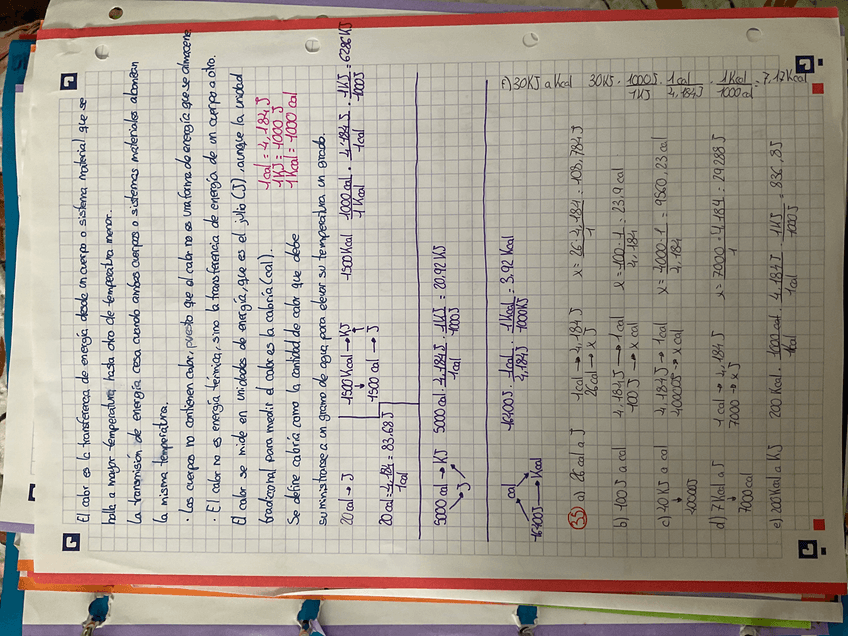 El calor es la transferencia de energía desde un cuerpo o sistema material que se
halle a mayor temperatura hasta otro de temperatura menor.
La transmisión de energía cesa cuando ambos cuerpos o sistemas materiales alcanzan
la misma temperatura.
· Los cuerpos no contienen calor, puesto que el calor no es una forma de energía que se almacene.
· El calor no es energía térmica, sino la transferencia de energía de un cuerpo a otro.
El calor se mide en unidades de energía, que es el julio (J), aunque la unidad
tradicional para medir el calor es la caloría (cal).
1 cal = 4,184 J
1 KJ = 1000 J
1 Kcal = 1000 cal
Se define caloría como la cantidad de calor que debe
suministrarse a un gramo de agua para elevar su temperatura un grado.
20 cal → J
20 cal = 4,184 J / 1 cal = 83,68 J
1500 Kcal → KJ
1500 cal → J
1500 Kcal · 1000 cal / 1 Kcal · 4,184 J / 1 cal · 1 KJ / 1000 J = 6286 KJ
5000 cal → KJ
J
5000 cal · 4,184 J / 1 cal · 1 KJ / 1000 J = 20,92 KJ
16400 J → Kcal
cal
16400 J · 1 cal / 4,184 J · 1 Kcal / 1000 KJ = 3.92 Kcal
35 a) 26 cal a J
1 cal → 4,184 J
26 cal → x J
x = 26 · 4,184 / 1 = 108,784 J
b) 100 J a cal
4,184 J → 1 cal
100 J → x cal
x = 100 · 1 / 4,184 = 23,9 cal
c) 40 KJ a cal
40000 J
4,184 J → 1 cal
40000 J → x cal
x = 4000 · 1 / 4,184 = 9560,23 cal
d) 7 Kcal a J
7000 cal
1 cal → 4,184 J
7000 → x J
x = 7000 · 4,184 / 1 = 29288 J
e) 200 Kcal a KJ
200 Kcal · 1000 cal / 1 Kcal · 4,184 J / 1 cal · 1 KJ / 1000 J = 836,8 J
f) 30 KJ a Kcal
30 KJ · 1000 J / 1 KJ · 1 cal / 4,184 J · 1 Kcal / 1000 cal = 7,17 Kcal